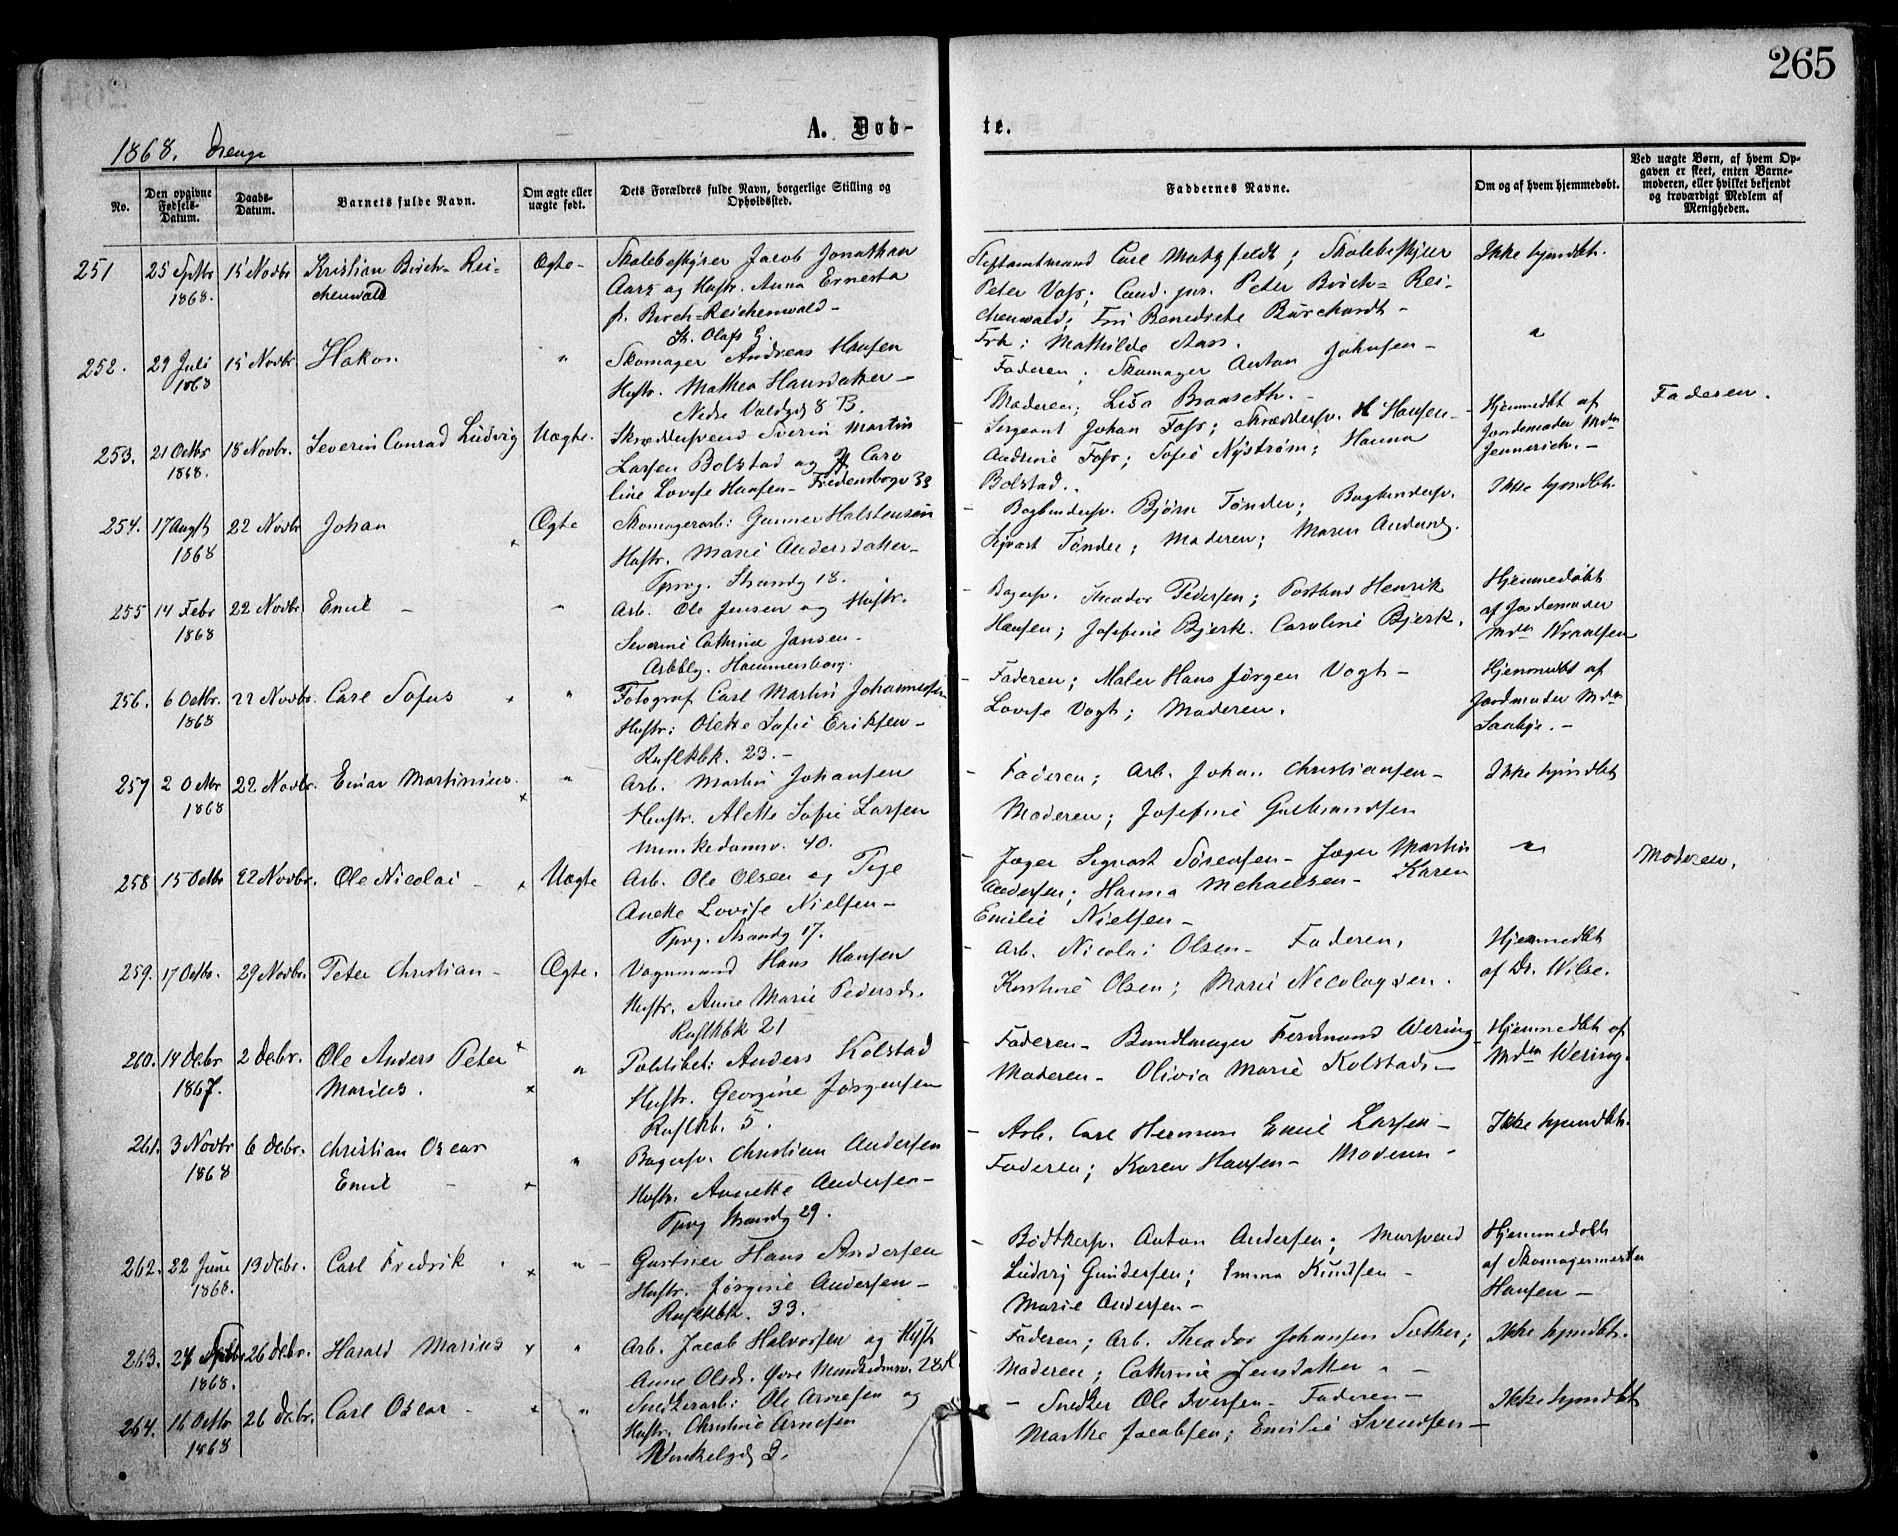 265
A. Døb-
te.
1868. Drenge
No.
Den opgivne Fødsels-Datum.
Daabs-Datum.
Barnets fulde Navn.
Om ægte eller uægte født.
Dets Forældres fulde Navn, borgerlige Stilling og Opholdssted.
Faddernes Navne.
Om og af hvem hjemmedøbt.
Ved uægte Børn, af hvem Op-
gaven er skeet, enten Barne-
moderen, eller hvilket bekjendt
og troværdigt Medlem af
Menigheden.
251 25 Septbr 15 Novbr Kristian Birch-Rei- Ægte- Skolebestyrer Jacob Jonathan
1868. chenwald Aars og Hustr. Anna Ernesta
f. Birch-Reichenwald-
St. Olafs G.
Stiftamtmand Carl Motzfeldt; Skolebestyrer Ikke hjmdbt.
Peter Voss; Cand. jur. Peter Birch-Rei-
chenwald; Benedicte Burchardt-
Frk: Mathilde Aass.
252. 29 Juli 15 Novbr. Hakon " Skomager Andreas Hansen
1868 Hustr. Mathea Hansdatter-
8 B.
- Faderen; Skomager Anton Johnsen- "
Moderen; Lisa Braaseth.-
253. 21 Octbr 18 Novbr. Severin Conrad Ludvig Uægte. Skræddersvend Sverin Martin
1868. Larsen Bolstad og Caro
line Lovise Hansen- Fredensborgv 33
Sergeant Johan Foss; Skræddersv. H Hansen- Hjemmedbt af Faderen.
Andrine Foss; Sofie Nystrøm; Hanna Jordemoder Mdm
Bolstad. Jennerich.-
254. 17 Augst 22 Novbr Johan Ægte Skomagerarb: Gunner Halstensen
1868 Hustr. Marie Andersdatter-
Tprvg. Strandg 18.
- Bogbindersv. Bjørn Tønder; Bogbindersv. Ikke hjmdbt.
Sigvart Tønder; Moderen; Maren Anders
255 14 Febr 22 Novbr. Emil - " Arb. Ole Jensen og Hustr.
1868 Severine Cathrine Jansen-
Arbblg. Hammersborg.
- Bagersv. Theodor Pedersen; Postbud Henrik Hjemmedøbt
Hansen; Josefine Bjerk. Caroline Bjerk. af Jordemoder
Mdm
256. 6 Octbr. 22 Novbr. Carl Sofus " Fotograf Carl Martin Johannesen
1868 Hustr: Olette Sofie Eriksen-
Rusløkbk. 23.-
- Faderen; Maler Hans Jørgen Vogt- Hjemmedbt af
Lovise Vogt; Moderen. Jordmoder Mdm
257 2 Octbr 22 Novbr. Einar Martinius. " Arb. Martin Johansen
1868 Hustr. Alette Sofie Larsen
Munkedamsv. 40.
- Faderen; Arb. Johan Christiansen- Ikke hjmdbt
Moderen; Josefine Gulbrandsen
258 15 Octbr 22 Novbr. Ole Nicolai - Uægte Arb. Ole Olsen og Pige
Anette Lovise Nielsen-
Tprvg. Strandg 17.
- Jæger Sigvart Sørensen- Jæger Martin " Moderen.
Andersen; Hanna Michaelsen- Karen
Emilie Nielsen-
259. 17 Octbr. 29 Novbr. Peter Christian- Ægte. Vognmand Hans Hansen
Hustr. Anne Marie Pedersd.
Rusløkbk 21
- Arb. Nicolai Olsen- Faderen. Hjemmedbt
Kirstine Olsen; Marie Nicolaysen. af Dr. Wilse.
260. 14 Debr 2 Debr. Ole Anders Peter " Politibet: Anders Kolstad
1867. Marius. Hustr. Georgine Jørgensen
Rusløkb. 5.
Faderen- Bundtmager Ferdinand Wering- Hjemmedbt af
Moderen- Olivia Marie Kolstad- Mdm Wering.
261. 3 Novbr 6 Debr. Christian Oscar " Bagersv. Christian Andersen
1868 Emil - Hustr. Annette Andersen-
Tprvg Strandg 29.
- Arb. Carl Herman Emil Larsen- Ikke hjemdbt.
Faderen; Karen Hansen- Moderen-
262. 22 Juni 13 Debr. Carl Fredrik " - Gartner Hans Andersen
1868. Hustr. Jørgine Andersen-
Rusløkbk. 33.
- Bødtkersv. Anton Andersen; Hjemmedøbt
Ludvig Gundersen; Emma Knudsen- af Skomagermester
Marie Andersen- Hansen-
263. 26 Debr. Harald Marius " Arb. Jacob Halvorsen og Hustr
1868. Anne Olsd. Øvre Munkedamsv. 28
- Faderen; Arb. Theodor Johansen Sæther; Ikke hjmdbt.
Moderen; Cathrine Jensdatter. -
264. 16 Octbr 26 Debr. Carl Oscar- " Snedkerarb: Ole Arnesen og
1868 Hustr. Christine Arnesen
Winkelgd 3.
- Snedker Ole Iversen- Faderen- Ikke hjmdbt
Marthe Jacobsen; Emilie Svendsen-